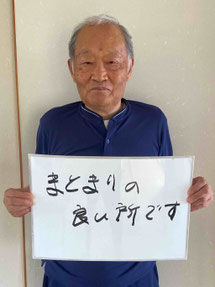 まとまりの
良い所です